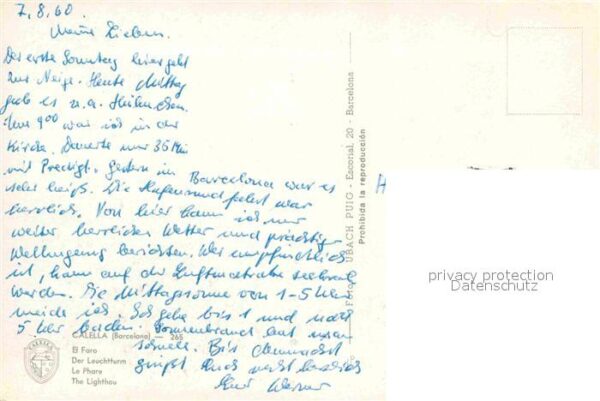 7.8.60.
Meine Lieben.
Der erste Sonntag hier geht
zur Neige. Heute Mittag
gab es u.a. Hühnchen.
Um 9⁰⁰ war ich in der
Kirche. Dauerte nur 36 Min
mit Predigt. Gestern in Barcelona war es
sehr heiß. Die Hafenrundfahrt war
herrlich. Von hier kann ich nur
weiter herrliches Wetter und prächtigen
Wellengang berichten. Wer empfindlich
ist, kann auf der Luftmatratze seekrank
werden. Die Mittagssonne von 1-5 Uhr
meide ich. Ich gehe bis 1 und nach
5 Uhr baden. Sonnenbrand hat man
schnell. Bis demnächst
grüßt Euch recht herzlich
Euer Werner
CALELLA (Barcelona) — 265
El Faro
Der Leuchtturm
Le Phare
The Lighthou
CALELLA
UBACH PUIG - Escorial, 20 - Barcelona
Prohibida la reproducción
H
privacy protection
Datenschutz